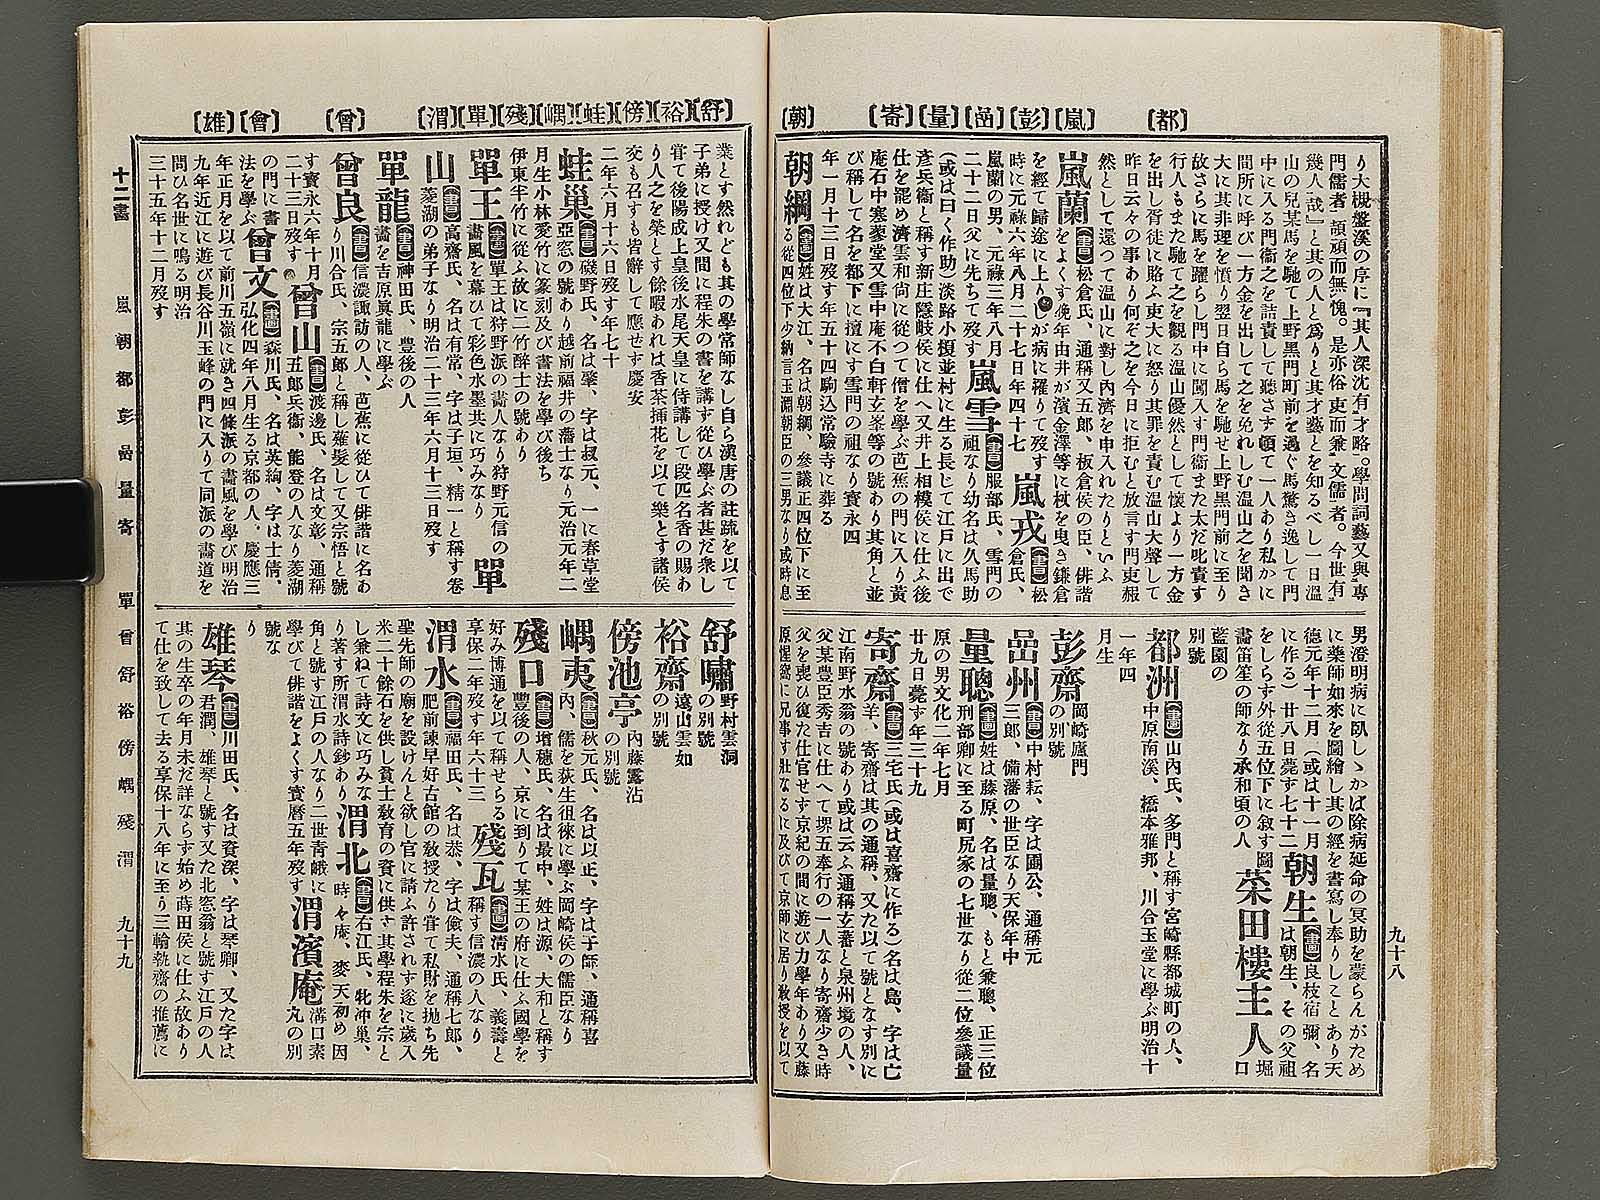 【都】
【嵐】【彭】【嵒】【量】【寄】
【朝】
り大槻盤溪の序に『其人深沈有才略。學問詞藝又與專
門儒者頡頏而無愧。是亦俗吏而兼文儒者。今世有
幾人哉』と其の人と爲りと其才藝とを知るべし一日溫
山の兄某馬を馳て上野黑門町前を過ぐ馬驚き逸して門
中に入る門衞之を詰責して聽さず頓て一人あり私かに
間所に呼び一方金を出して之を免れしむ溫山之を聞き
大に其非理を憤り翌日自ら馬を馳せ上野黑門前に至り
故さらに馬を躍らし門中に闖入す門衞また太だ叱責す
行人もまた馳て之を觀る溫山優然として懷より一方金
を出し胥徒に賂ふ吏大に怒り其罪を責む溫山大聲して
昨日云々の事あり何ぞ之を今日に拒むと放言す門吏赧
然として還つて溫山に對し內濟を申入れたりといふ
嵐蘭【書】松倉氏、通稱又五郎、板倉侯の臣、俳諧
をよくす晩年由井が濱金澤等に杖を曳き鎌倉
を經て歸途に上りしが病に罹りて歿す
時に元祿六年八月二十七日年四十七
嵐戎【書】松
倉氏、
嵐蘭の男、元祿三年八月
二十二日父に先ちて歿す
嵐雪【書】服部氏、雪門の
祖なり幼名は久馬助
(或は曰く作助)淡路小榎並村に生る長じて江戶に出で
彥兵衞と稱す新庄隱岐侯に仕へ又井上相模侯に仕ふ後
仕を罷め濟雲和尙に從つて僧を學ぶ芭蕉の門に入り黃
庵石中寒蓼堂又雪中庵不白軒玄峯等の號あり其角と並
び稱して名を都下に擅にす雪門の祖なり寶永四
年一月十三日歿す年五十四駒込常驗寺に葬る
朝綱【書】姓は大江、名は朝綱、參議正四位下に至
る從四位下少納言玉淵朝臣の三男なり或時息
男澄明病に臥しゝかば除病延命の冥助を蒙らんがため
に藥師如來を圖繪し其の經を書寫し奉りしことあり天
德元年十二月(或は十一月
に作る)廿八日薨ず七十二
朝生【畫】良枝宿彌、名
は朝生、その父祖
をしらず外從五位下に叙す圖
畵笛笙の師なり承和頃の人
菜田樓主人口堀
藍園の
別號
都洲【畫】山內氏、多門と稱す宮崎縣都城町の人、
中原南溪、橋本雅邦、川合玉堂に學ぶ明治十
一年四
月生
彭齋岡崎廬門
の別號
嵒州【書】中村耘、字は圃公、通稱元
三郎、備藩の世臣なり天保年中
量聰【畫】姓は藤原、名は量聰、もと兼聰、正三位
刑部卿に至る町尻家の七世なり從二位參議量
原の男文化二年七月
廿九日薨ず年三十九
寄齋【書】三宅氏(或は喜齋に作る)名は島、字は亡
羊、寄齋は其の通稱、又た以て號となす別に
江南野水翁の號あり或は云ふ通稱玄蕃と泉州境の人、
父某豐臣秀吉に仕へて堺五奉行の一人なり寄齋少き時
父を喪ひ復た仕官せず京紀の間に遊び力學年あり又藤
原惺窩に兄事す壯なるに及びて京師に居り敎授を以て
九十八
【舒】【裕】【傍】【蛙】【嵎】【殘】【單】【渭】
【曾】
【會】【雄】
業とす然れども其の學常師なし自ら漢唐の註疏を以て
子弟に授け又間に程朱の書を講ず從ひ學ぶ者甚だ衆し
甞て後陽成上皇後水尾天皇に侍講して段匹名香の賜あ
り人之を榮とす餘暇あれは香茶插花を以て樂とす諸侯
交も召すも皆辭して應せず慶安
二年六月十六日歿す年七十
蛙巢【書】礒野氏、名は肇、字は叔元、一に春草堂
亞窓の號あり越前福井の藩士なり元治元年二
月生小林愛竹に篆刻及び書法を學び後ち
伊東半竹に從ふ故に二竹醉士の號あり
單王【畫】單王は狩野派の畵人なり狩野元信の
畵風を慕ひて彩色水墨共に巧みなり
單
山【畫】高齋氏、名は有常、字は子垣、精一と稱す卷
菱湖の弟子なり明治二十三年六月十三日歿す
單龍【畫】神田氏、豐後の人
畵を吉原眞龍に學ぶ
曾良【書】信濃諏訪の人、芭蕉に從ひて俳諧に名あ
り川合氏、宗五郎と稱し薙髮して又宗悟と號
す寶永六年十月
二十三日歿す
曾山【書】渡邊氏、名は文彰、通稱
五郎兵衞、能登の人なり菱湖
の門に書
法を學ぶ
會文【畫】森川氏、名は英絢、字は士倩、
弘化四年八月生る京都の人、慶應三
年正月を以て前川五嶺に就き四條派の畵風を學び明治
九年近江に遊び長谷川玉峰の門に入りて同派の畵道を
問ひ名世に鳴る明治
三十五年十二月歿す
舒嘯野村雲洞
の別號
裕齋遠山雲如
の別號
傍池亭內藤露沾
の別號
嵎夷【書】秋元氏、名は以正、字は于師、通稱喜
內、儒を荻生徂徠に學ぶ岡崎侯の儒臣なり
殘口【書】增穗氏、名は最中、姓は源、大和と稱す
豐後の人、京に到りて某王の府に仕ふ國學を
好み博通を以て稱せらる
享保二年歿す年六十三
殘瓦【畫】淸水氏、義壽と
稱す信濃の人なり
渭水【書】福田氏、名は恭、字は儉夫、通稱七郎、
肥前諫早好古館の敎授たり甞て私財を拋ち先
聖先師の廟を設けんと欲し官に請ふ許されず遂に歲入
米二十餘石を供し貧士敎育の資に供す其學程朱を宗と
し兼ねて詩文に巧みな
り著す所渭水詩鈔あり
渭北【書】右江氏、牝冲巢、
時々庵、麥天初め因
角と號す江戶の人なり二世靑峨に
學びて俳諧をよくす寶曆五年歿す
渭濱庵溝口素
丸の別
號な
り
雄琴【書】川田氏、名は資深、字は琴卿、又た字は
君潤、雄琴と號す又た北窓翁と號す江戶の人
其の生卒の年月未だ詳ならず始め蒔田侯に仕ふ故あり
て仕を致して去る享保十八年に至り三輪執齋の推薦に
十二畵　嵐朝都彭嵒量寄　單曾舒裕傍嵎殘渭　九十九